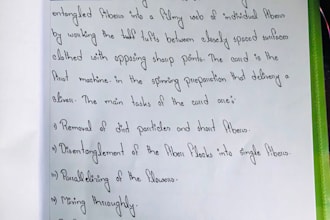 entangled fibers into a filmy web of individual fibers
by working the tuft tufts between closely spaced surfaces
clothed with opposing sharp points. The card is the
first machine in the spinning preparation that delivery a
sliver. The main tasks of the card are:
i) Removal of dirt particles and short fibers.
ii) Disentanglement of the fiber flocks into single fibers.
iii) Parallelizing of the
iv) Mixing throughly.